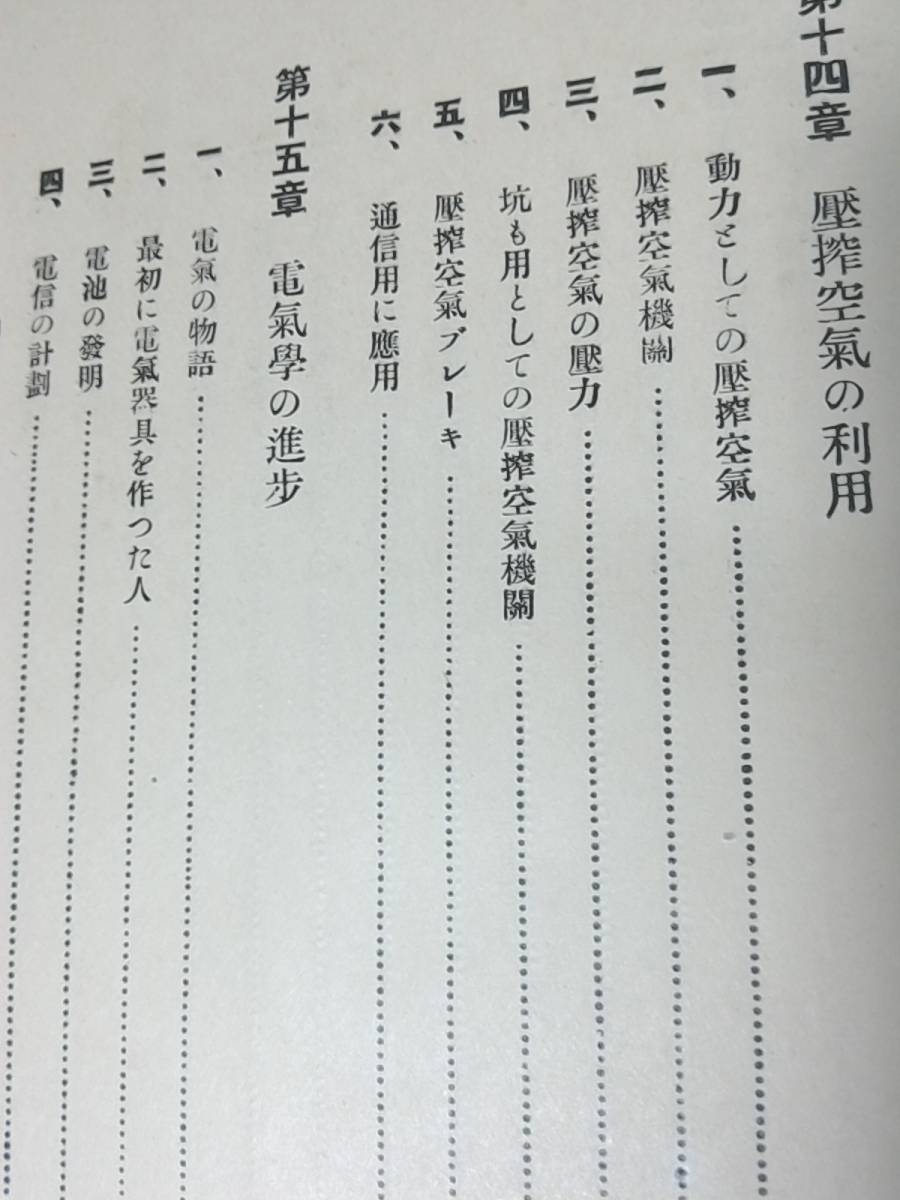 第十四章 壓搾空氣の利用
一、動力としての壓搾空氣
二、壓搾空氣機關
三、壓搾空氣の壓力
四、坑も用としての壓搾空氣機關
五、壓搾空氣ブレーキ
六、通信用に應用
第十五章 電氣學の進步
一、電氣の物語
二、最初に電氣器具を作つた人
三、電池の發明
四、電信の計劃